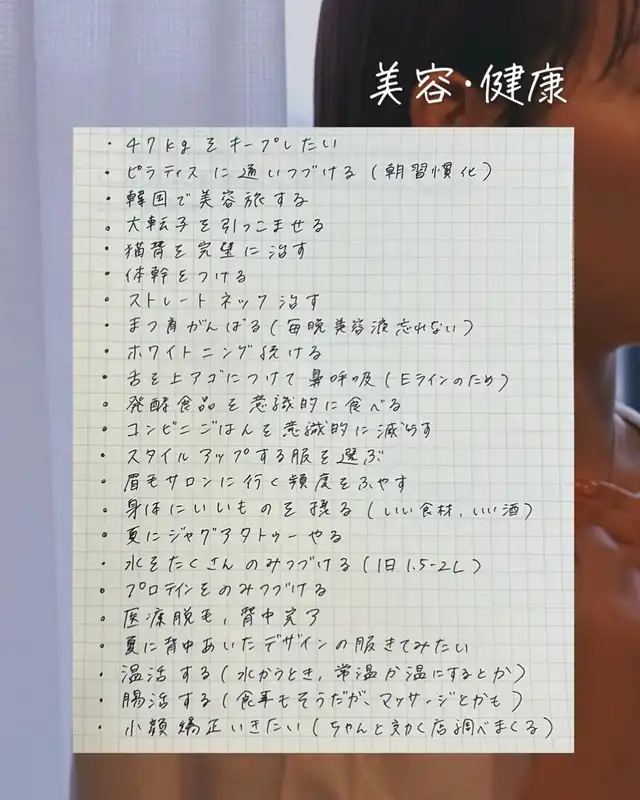 美容・健康
・47kgをキープしたい
・ピラティスに通いつづける(朝習慣化)
・韓国で美容旅する
・大転子を引っこませる
・猫背を完璧に治す
・体幹をつける
・ストレートネック治す
・まつ育がんばる(毎晩美容液忘れない)
・ホワイトニング続ける
・舌を上アゴにつけて鼻呼吸(Eラインのため)
・発酵食品を意識的に食べる
・コンビニごはんを意識的に減らす
・スタイルアップする服を選ぶ
・眉毛サロンに行く頻度をふやす
・身体にいいものを摂る(いい食材、いい酒)
・夏にジャグアタトゥーやる
・水をたくさんのみつづける(1日1.5-2L)
・プロテインをのみつづける
・医療脱毛、背中完了
・夏に背中あいたデザインの服きてみたい
・温活する(水かうとき、常温か温にするとか)
・腸活する(食事もそうだが、マッサージとかも)
・小顔矯正いきたい(ちゃんと効く店調べまくる)